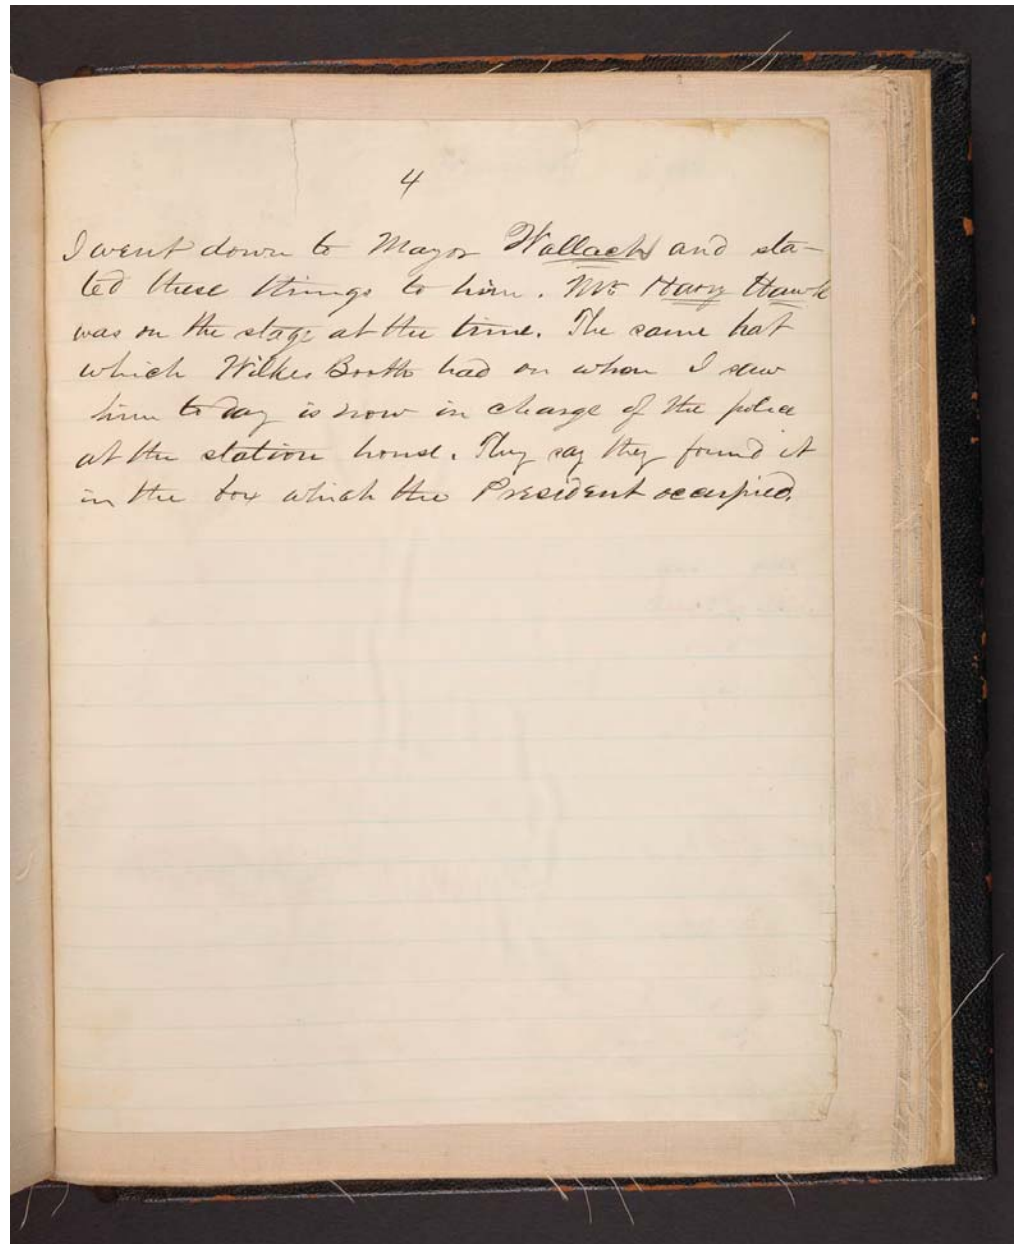 4
I went down to Mayor Wallach and sta-
ted these things to him. Mr Harry Hawk
was on the stage at the time. The same hat
which Wilkes Booth had on when I saw
him to day is now in charge of the police
at the station house. They say they found it
in the box which the President occupied.